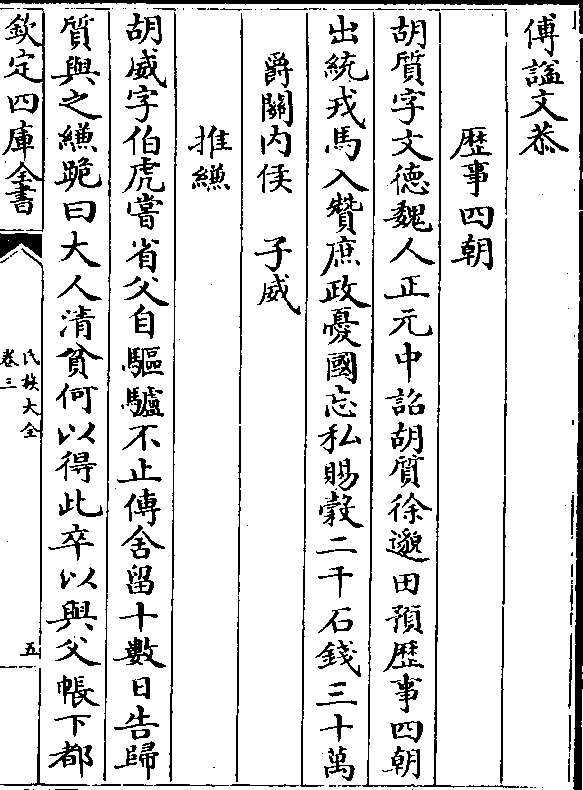 傅諡文恭
歴事四朝
胡質字文德魏人正元中詔胡質徐邈田預歴事四朝
出統戎馬入贊庶政憂國忘私賜穀二千石錢三十萬
爵關内侯　子威
推縑
胡威字伯虎嘗省父自驅驢不止傳舍留十數日告歸
質與之縑跪曰大人清貧何以得此卒以與父帳下都
欽定四庫全書
氏族大全
卷三
五